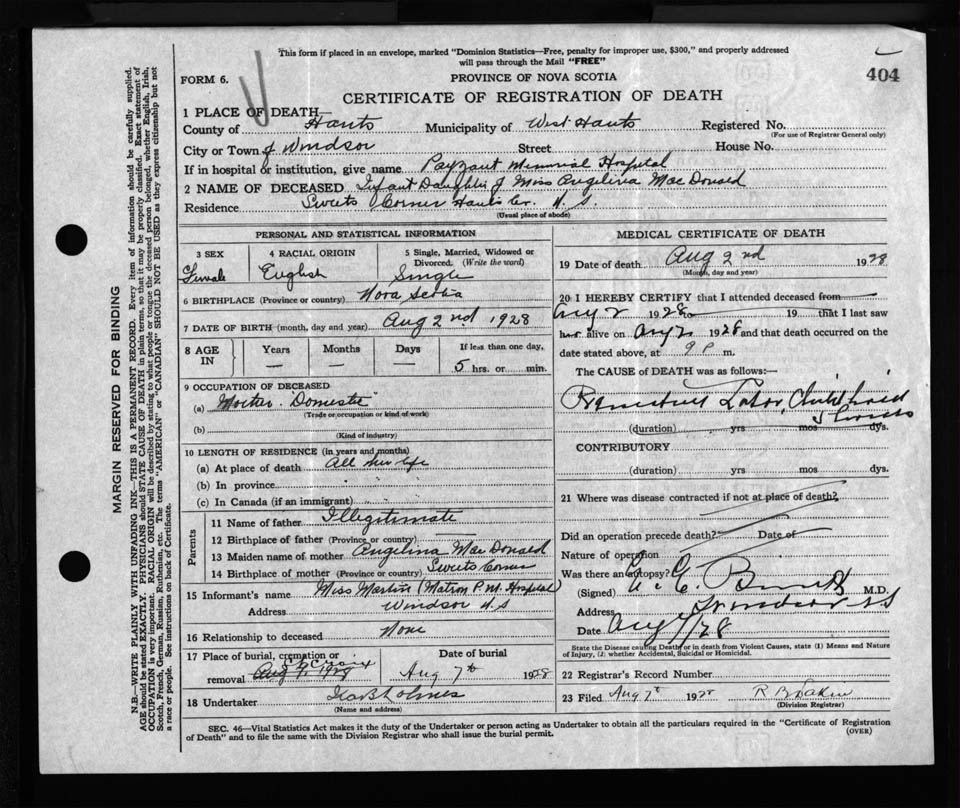 This form if placed in an envelope, marked "Dominion Statistics—Free, penalty for improper use, $300," and properly addressed
will pass through the Mail "FREE"
FORM 6.
PROVINCE OF NOVA SCOTIA
404
CERTIFICATE OF REGISTRATION OF DEATH
1 PLACE OF DEATH
County of Hants Municipality of West Hants Registered No.
(For use of Registrar General only)
City or Town of Windsor Street House No.
If in hospital or institution, give name Payzant Memorial Hospital
2 NAME OF DECEASED Infant Daughter of Miss Angelina MacDonald
Residence Sweets Corner Hants Co. N. S.
(Usual place of abode)
PERSONAL AND STATISTICAL INFORMATION
3 SEX 4 RACIAL ORIGIN 5 Single, Married, Widowed or
Divorced. (Write the word)
Female English Single
6 BIRTHPLACE (Province or country) Nova Scotia
7 DATE OF BIRTH (month, day and year) Aug 2nd 1928
8 AGE IN Years Months Days If less than one day,
— — — 5 hrs. or min.
9 OCCUPATION OF DECEASED
(a) Mother. Domestic
(Trade or occupation or kind of work)
(b)
(Kind of industry)
10 LENGTH OF RESIDENCE (in years and months)
(a) At place of death All her life
(b) In province
(c) In Canada (if an immigrant)
Parents
11 Name of father Illegitimate
12 Birthplace of father (Province or country)
13 Maiden name of mother Angelina MacDonald
14 Birthplace of mother (Province or country) Sweets Corner
15 Informant's name Miss Martin (Matron P. M. Hospital
Address Windsor N.S
16 Relationship to deceased None
17 Place of burial, cremation or
removal
Date of burial
Aug 7th 1928
18 Undertaker Holmes
(Name and address)
MEDICAL CERTIFICATE OF DEATH
19 Date of death Aug 2nd 1928
(Month, day and year)
20 I HEREBY CERTIFY that I attended deceased from
Aug 2 1928 to 19 that I last saw
her alive on Aug 2 1928 and that death occurred on
date stated above, at 9 P m.
The CAUSE of DEATH was as follows:—
Premature Labor, Child lived
5 hours
(duration) yrs mos dys.
CONTRIBUTORY
(duration) yrs mos dys.
21 Where was disease contracted if not at place of death?
Did an operation precede death? Date of
Nature of operation
Was there an autopsy?
(Signed) M.D.
Address Windsor NS
Date Aug 7/28
State the Disease causing Death, or in death from Violent Causes, state (1) Means and Nature
of Injury, (2) whether Accidental, Suicidal or Homicidal.
22 Registrar's Record Number
23 Filed Aug 7th 1928
(Division Registrar)
SEC. 46—Vital Statistics Act makes it the duty of the Undertaker or person acting as Undertaker to obtain all the particulars required in the "Certificate of Registration
of Death" and to file the same with the Division Registrar who shall issue the burial permit.
(OVER)
MARGIN RESERVED FOR BINDING
N.B.—WRITE PLAINLY WITH UNFADING INK—THIS IS A PERMANENT RECORD. Every item of information should be carefully supplied.
AGE should be stated EXACTLY. PHYSICIANS should STATE CAUSE OF DEATH in plain terms, so that it may be properly classified. Exact statement of
OCCUPATION is very important. RACIAL ORIGIN will be described by stating to what people or tongue the deceased person belonged, whether English, Irish,
Scotch, French, German, Russian, Ruthenian, etc. The terms "AMERICAN" or "CANADIAN" SHOULD NOT BE USED as they express citizenship but not
a race or people. See instructions on back of Certificate.